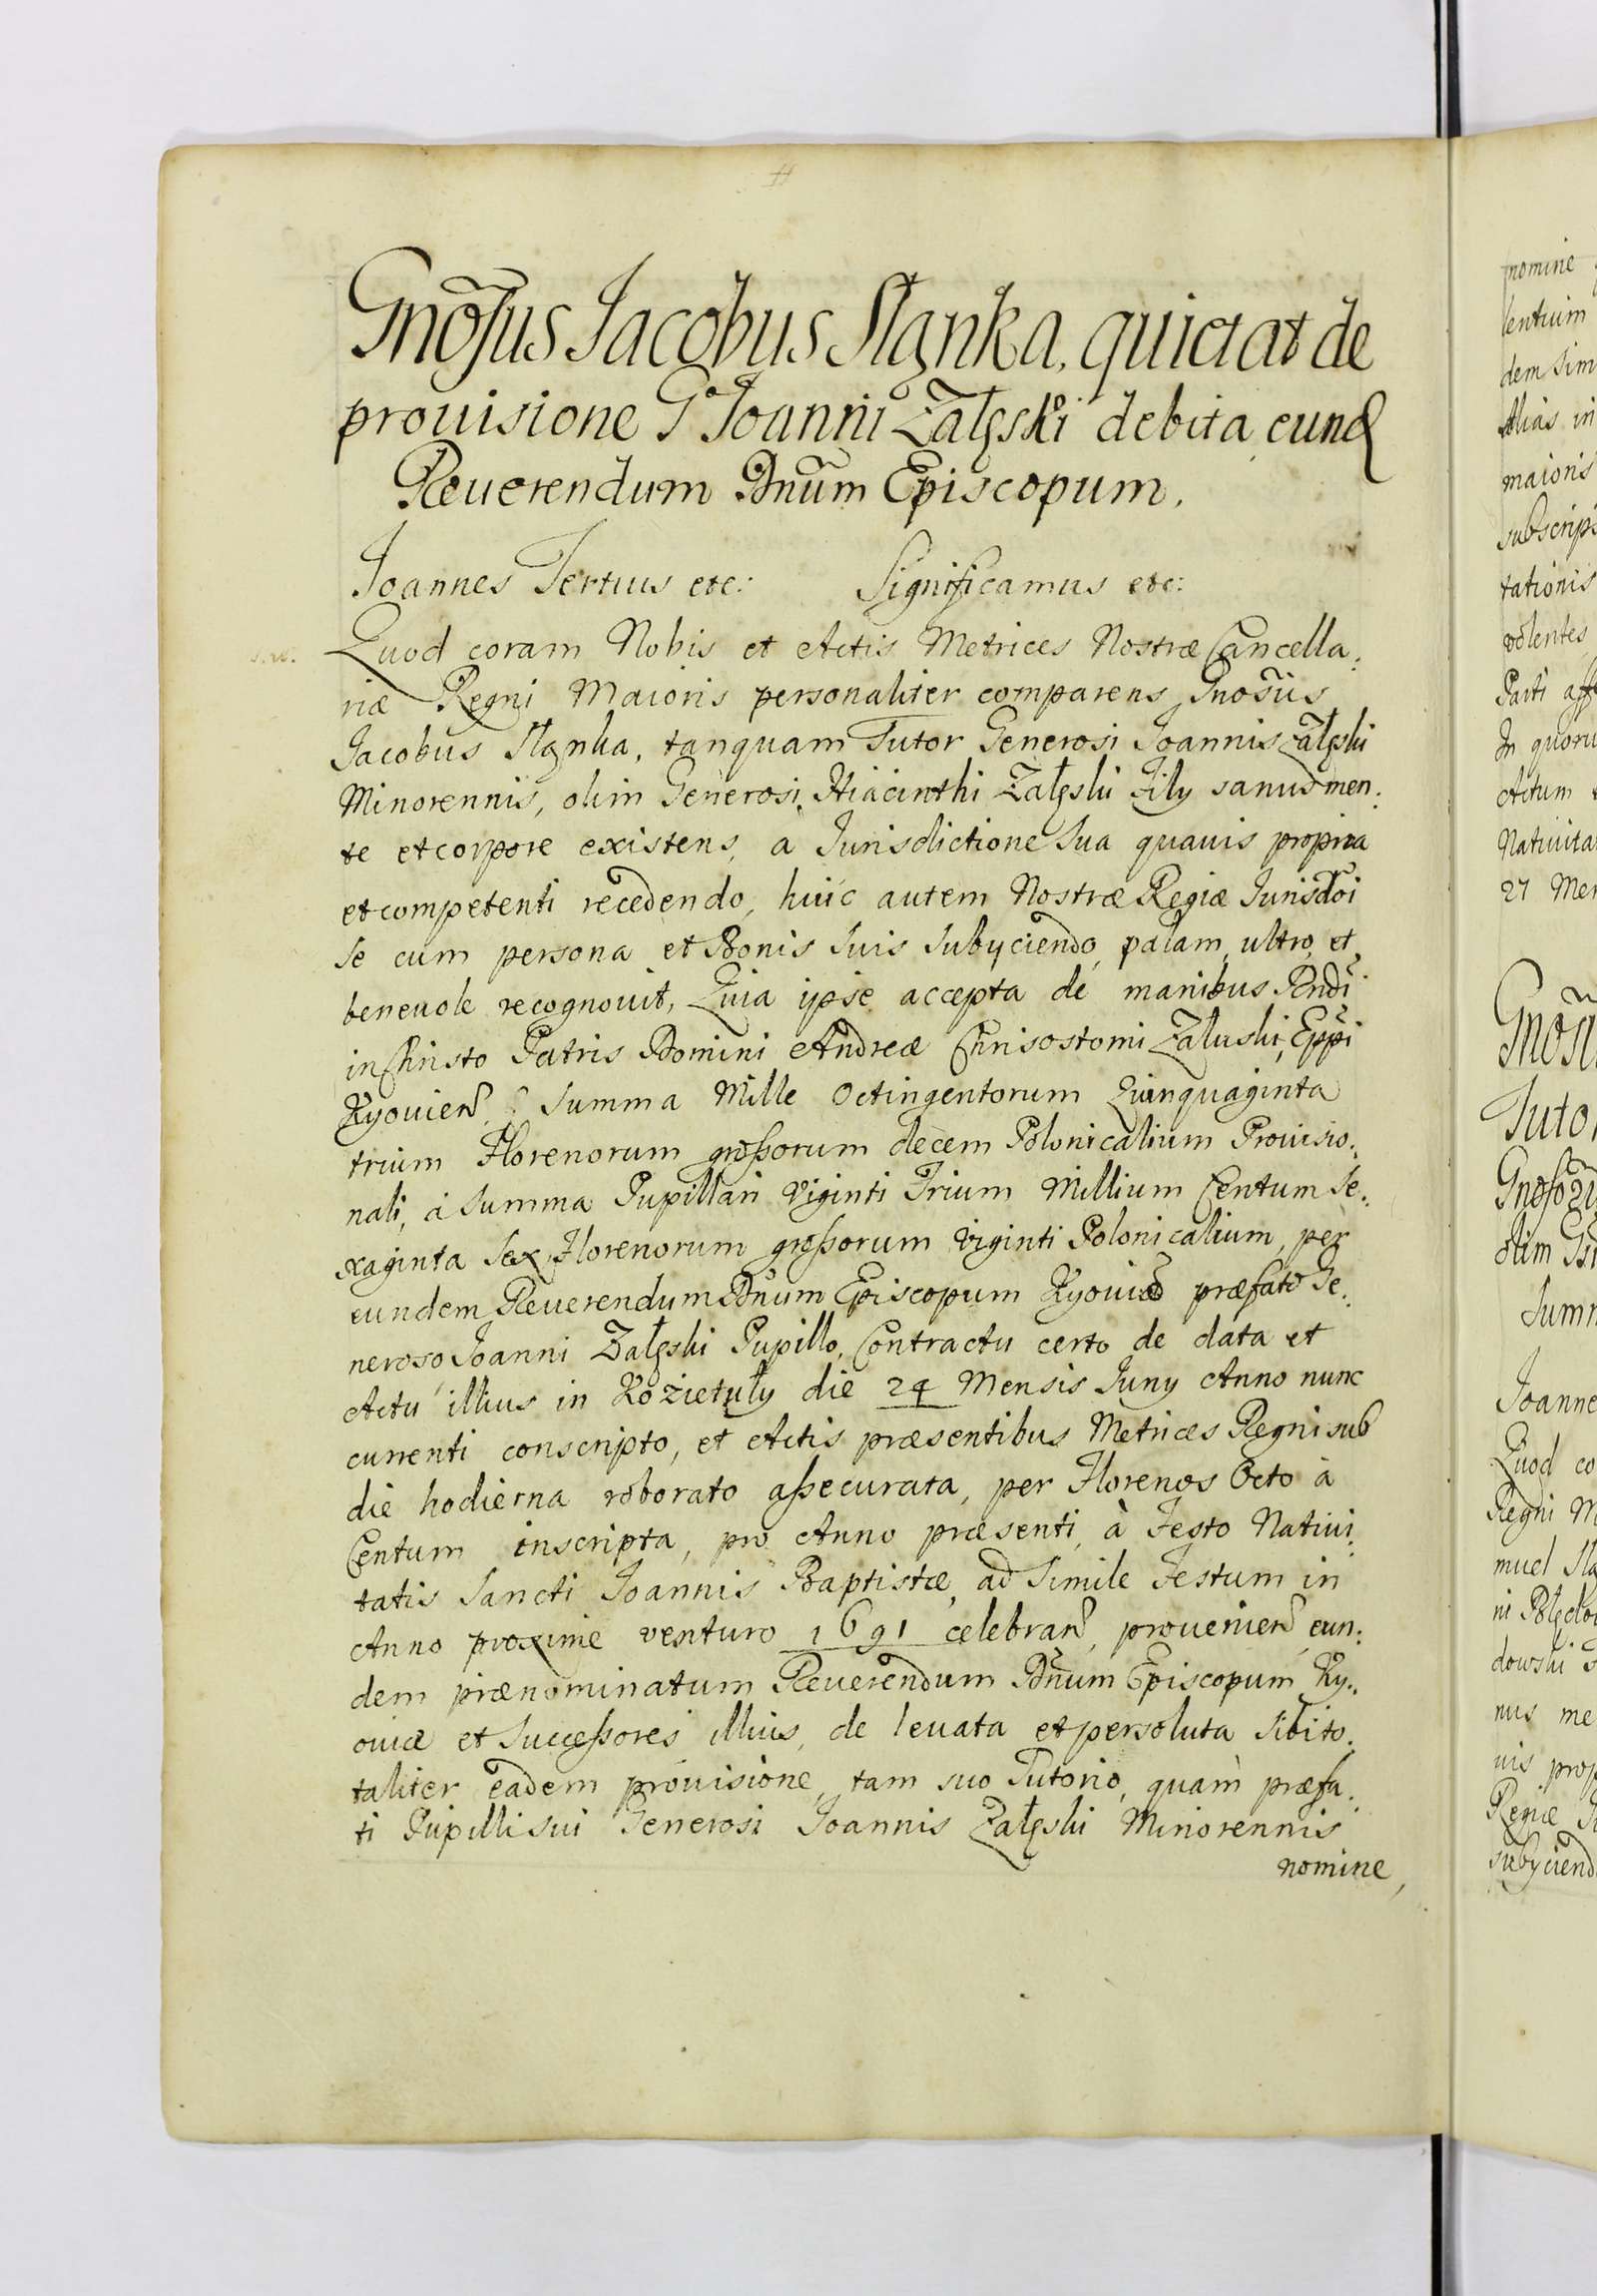 Gnosus Jacobus Slanka, quietat de
prouisione Go Joanni Załęski debita eund
Reuerendum Dnum Episcopum.
Joannes Tertius etc: Significamus etc:
Quod coram Nobis et Actis Metrices Nostræ Cancella:
riæ Regni Maioris personaliter comparens Gnosus
Jacobus Slanka, tanquam Tutor Generosi Joannis Załęski
Minorennis, olim Generosi Hiacinthi Załęski Filij sanus men:
te et corpore existens, a Jurisdictione sua quauis propria
et competenti recedendo, huic autem Nostræ Regiæ Jurisdoi
se cum persona et Bonis suis subijciendo, palam, ultro, et
beneuole recognouit, Quia ipse accepta de manibus Rndi
in Christo Patris Domini Andreæ Chrisostomi Załuski, Eppi
Kyouien. Summa Mille Octingentorum Quinquaginta
trium Florenorum großorum decem Polonicalium Prouisio:
nali, à summa Pupillari Viginti Trium Millium Centum Se:
xaginta Sex Florenorum großorum viginti Polonicalium, per
eundem Reuerendum Dnum Episcopum Kyouien præfato Ge:
neroso Joanni Załęski Pupillo, Contractu certo de data et
Actu illius in Kozietuły die 24 Mensis Juny Anno nunc
currenti conscripto, et Actis præsentibus Metrices Regni sub
die hodierna roborato aßecurata, per Florenos Octo à
Centum inscripta, pro Anno præsenti, à Festo Natiui:
tatis Sancti Joannis Baptistæ, ad Simile Festum in
Anno proxime venturo 1691 celebran, prouenien, eun:
dem prænominatum Reuerendum Dnum Episcopum Ky:
ouiæ et Succeßores illius, de leuata et persoluta sibi to:
taliter eadem prouisione, tam suo Tutorio, quam præfa:
ti Pupilli sui Generosi Joannis Załęski Minorennis
nomine,
nomine
dem sim
alias in
maioris
subscrip
tationis
volentes
Parti aff
In quoru
Actum
Natiuita
27 Men
Tutor
olim
Summ
Joanne
Quod co
Regni M
muel
dowski
nus me
uis prop
Regiæ
subijciend